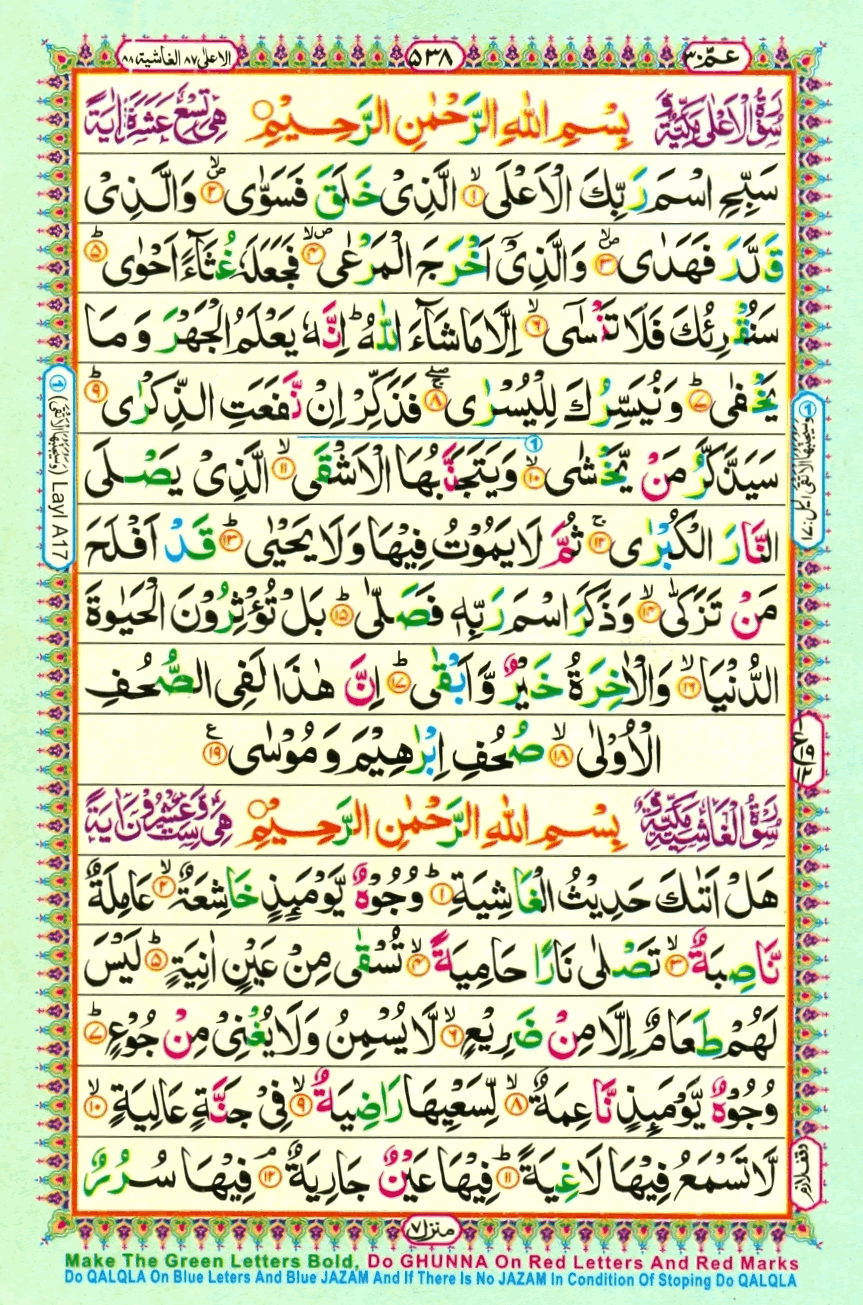 الاعلى ٨٧ الغاشية ٨٨
٥٣٨
عمّ ٣٠
سُوْرَةُ الْاَعْلٰى مَكِّيَّةٌ
بِسْمِ اللّٰهِ الرَّحْمٰنِ الرَّحِيْمِ
هِىَ تِسْعَ عَشَرَةَ اٰيَةً
سَبِّحِ اسْمَ رَبِّكَ الْاَعْلَى ۙ﴿١﴾ الَّذِىْ خَلَقَ فَسَوّٰى ۙ﴿٢﴾ وَالَّذِىْ
قَدَّرَ فَهَدٰى ۙ﴿٣﴾ وَالَّذِىْۤ اَخْرَجَ الْمَرْعٰى ۙ﴿٤﴾ فَجَعَلَهٗ غُثَآءً اَحْوٰى ؕ﴿٥﴾
سَنُقْرِئُكَ فَلَا تَنْسٰٓى ۙ﴿٦﴾ اِلَّا مَا شَآءَ اللّٰهُ ؕ اِنَّهٗ يَعْلَمُ الْجَهْرَ وَمَا
يَخْفٰى ؕ﴿٧﴾ وَنُيَسِّرُكَ لِلْيُسْرٰى ۚۖ﴿٨﴾ فَذَكِّرْ اِنْ نَّفَعَتِ الذِّكْرٰى ؕ﴿٩﴾
سَيَذَّكَّرُ مَنْ يَّخْشٰى ۙ﴿١٠﴾ وَيَتَجَنَّبُهَا الْاَشْقَى ۙ﴿١١﴾ الَّذِىْ يَصْلَى
النَّارَ الْكُبْرٰى ۚ﴿١٢﴾ ثُمَّ لَا يَمُوْتُ فِيْهَا وَلَا يَحْيٰى ؕ﴿١٣﴾ قَدْ اَفْلَحَ
مَنْ تَزَكّٰى ۙ﴿١٤﴾ وَذَكَرَ اسْمَ رَبِّهٖ فَصَلّٰى ؕ﴿١٥﴾ بَلْ تُؤْثِرُوْنَ الْحَيٰوةَ
الدُّنْيَا ۙ﴿١٦﴾ وَالْاٰخِرَةُ خَيْرٌ وَّاَبْقٰى ؕ﴿١٧﴾ اِنَّ هٰذَا لَفِى الصُّحُفِ
الْاُوْلٰى ۙ﴿١٨﴾ صُحُفِ اِبْرٰهِيْمَ وَمُوْسٰى ﴿١٩﴾ ع
سُوْرَةُ الْغَاشِيَةِ مَكِّيَّةٌ
بِسْمِ اللّٰهِ الرَّحْمٰنِ الرَّحِيْمِ
هِىَ سِتٌّ وَّعِشْرُوْنَ اٰيَةً
هَلْ اَتٰىكَ حَدِيْثُ الْغَاشِيَةِ ؕ﴿١﴾ وُجُوْهٌ يَّوْمَئِذٍ خَاشِعَةٌ ۙ﴿٢﴾ عَامِلَةٌ
نَّاصِبَةٌ ۙ﴿٣﴾ تَصْلٰى نَارًا حَامِيَةً ۙ﴿٤﴾ تُسْقٰى مِنْ عَيْنٍ اٰنِيَةٍ ؕ﴿٥﴾ لَيْسَ
لَهُمْ طَعَامٌ اِلَّا مِنْ ضَرِيْعٍ ۙ﴿٦﴾ لَّا يُسْمِنُ وَلَا يُغْنِىْ مِنْ جُوْعٍ ؕ﴿٧﴾
وُجُوْهٌ يَّوْمَئِذٍ نَّاعِمَةٌ ۙ﴿٨﴾ لِّسَعْيِهَا رَاضِيَةٌ ۙ﴿٩﴾ فِىْ جَنَّةٍ عَالِيَةٍ ۙ﴿١٠﴾
لَّا تَسْمَعُ فِيْهَا لَاغِيَةً ؕ﴿١١﴾ فِيْهَا عَيْنٌ جَارِيَةٌ ۘ﴿١٢﴾ فِيْهَا سُرُرٌ
١ وَسَيُجَنَّبُهَا الْاَتْقَى اليل: ١٧
١ (وَسَيُجَنَّبُهَا الْاَتْقَى) Layl A17
ع ١٩ ١٢
وقف لازم
منزل ٧
Make The Green Letters Bold, Do GHUNNA On Red Letters And Red Marks
Do QALQLA On Blue Leters And Blue JAZAM And If There Is No JAZAM In Condition Of Stoping Do QALQLA